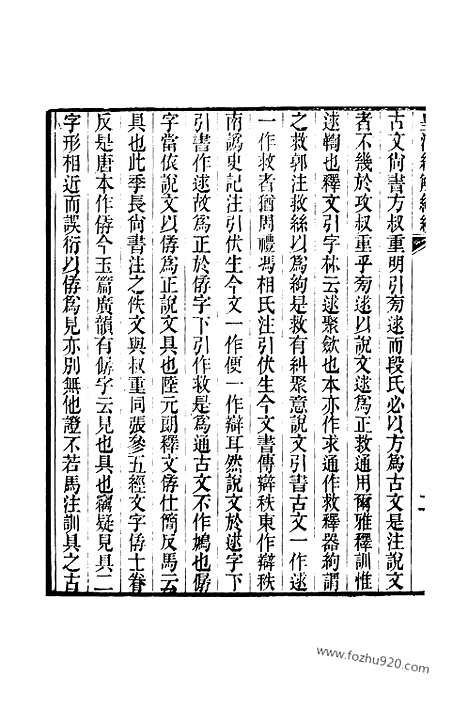 皇清經解續編
古文尚書方叔重明引㫄逑而段氏必以方爲古文是注說文
者不幾於攻叔重乎㫄逑以說文逑爲正救通用爾雅釋訓惟
逑鞫也釋文引字林云逑聚斂也本亦作求通作救釋器絇謂
之救郭注救絲以爲絇是救有糾聚意說文引書古文一作逑
一作救者猶周禮馮相氏注引伏生今文書傳辯秩東作辯秩
南譌史記注引伏生今文一作便一作辯耳然說文於逑字下
引書作逑故爲正於孱字下引作救是爲通古文不作鳩也孱
字當依說文以孱爲正說文具也陸元朗釋文孱仕簡反馬云
具也此季長尚書注之佚文與叔重同張參五經文字孱士眷
反是唐本作孱今玉篇廣韻有孱字云見也具也竊疑見具二
字形相近而誤衍以孱爲見亦別無他證不若馬注訓具之古
www.fozhu920.com